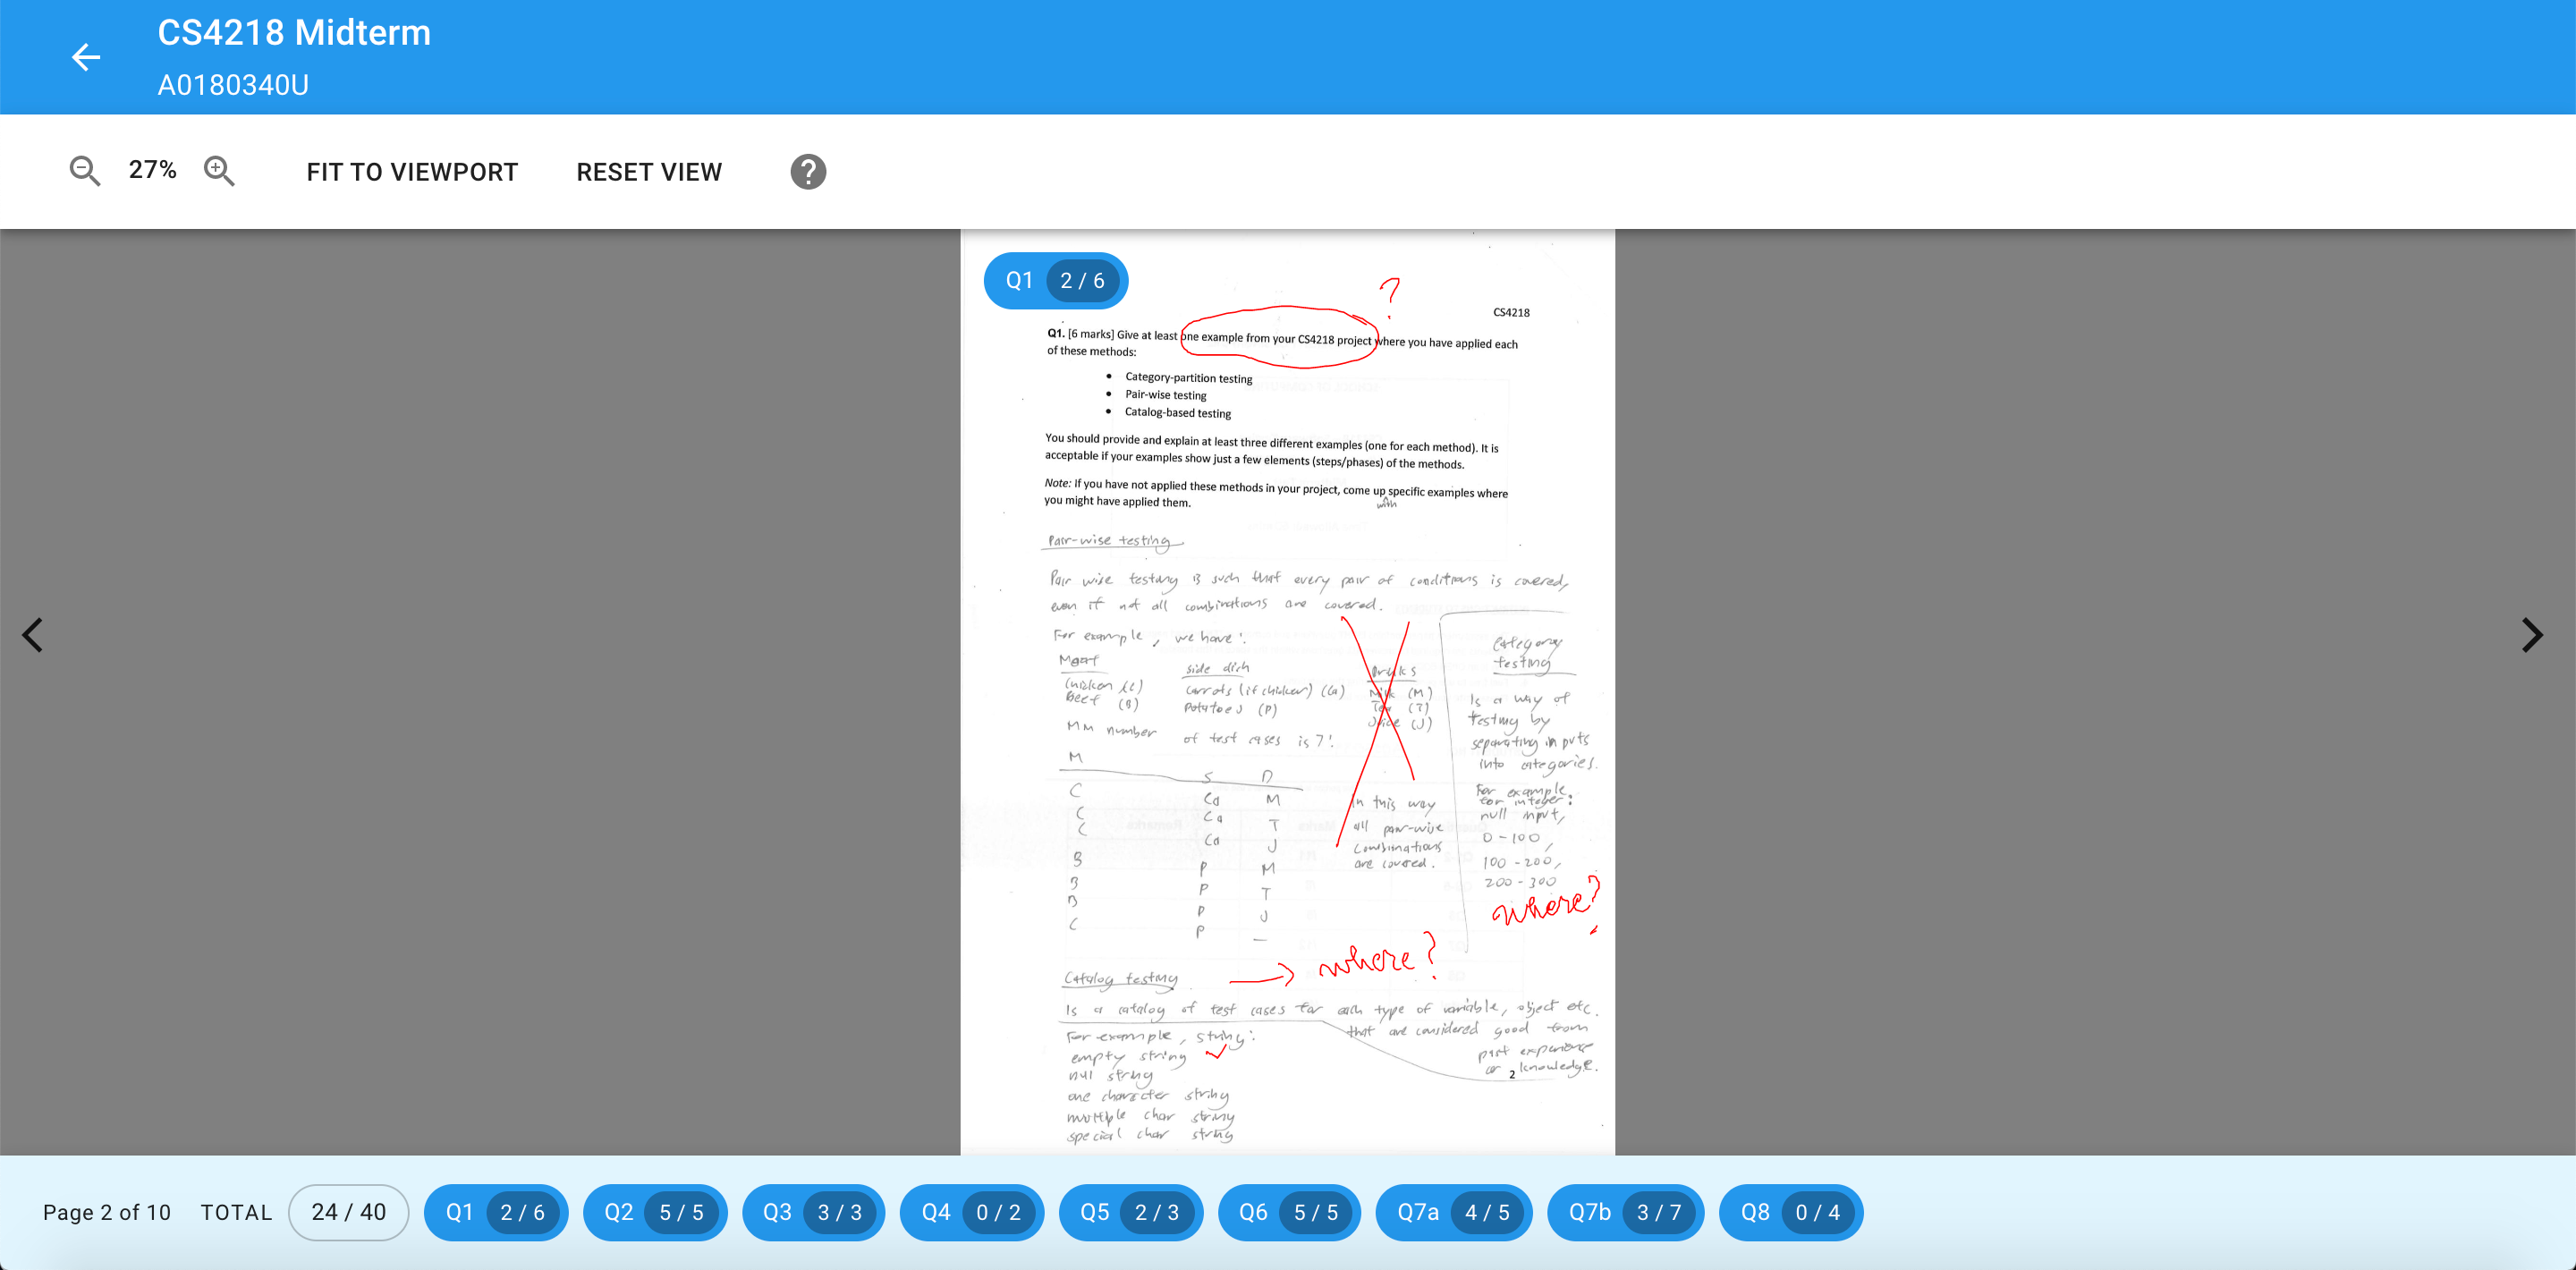 CS4218 Midterm
A0180340U
27%
FIT TO VIEWPORT
RESET VIEW
?
Q1 2 / 6
?
CS4218
Q1. [6 marks] Give at least one example from your CS4218 project where you have applied each
of these methods:
• Category-partition testing
• Pair-wise testing
• Catalog-based testing
You should provide and explain at least three different examples (one for each method). It is
acceptable if your examples show just a few elements (steps/phases) of the methods.
Note: If you have not applied these methods in your project, come up specific examples where
with
you might have applied them.
Pair-wise testing
Pair wise testing is such that every pair of conditions is covered,
even if not all combinations are covered.
For example, we have:
Meat
Chicken (C)
Beef (B)
side dish
Carrots (if chicken) (Ca)
Potatoes (P)
Drinks
Milk (M)
Tea (T)
Juice (J)
Min number of test cases is 7:
M S D
C Ca M
C Ca T
C Ca J
B P M
B P T
B P J
C P —
In this way
all pair-wise
combinations
are covered.
Category
testing
Is a way of
testing by
separating inputs
into categories.
For example
for integer:
null input,
0-100,
100-200,
200-300
where?
Catalog testing
→ where?
Is a catalog of test cases for each type of variable, object etc.
that are considered good from
past experience
or knowledge.
For example, string:
empty string
null string
one character string
multiple char string
special char string
2
Page 2 of 10
TOTAL 24 / 40
Q1 2 / 6
Q2 5 / 5
Q3 3 / 3
Q4 0 / 2
Q5 2 / 3
Q6 5 / 5
Q7a 4 / 5
Q7b 3 / 7
Q8 0 / 4